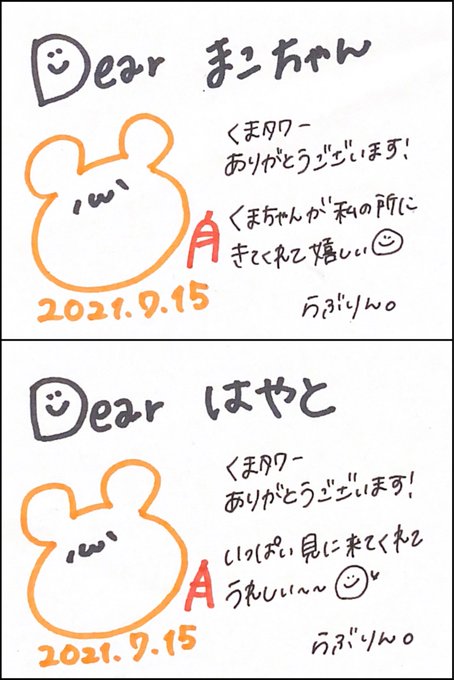 Dear まこちゃん
くまタワー
ありがとうございます!
くまちゃんが私の所に
きてくれて嬉しい
2021.7.15
らぶりん。
Dear はやと
くまタワー
ありがとうございます!
いっぱい見に来てくれて
うれしい〜〜
2021.7.15
らぶりん。